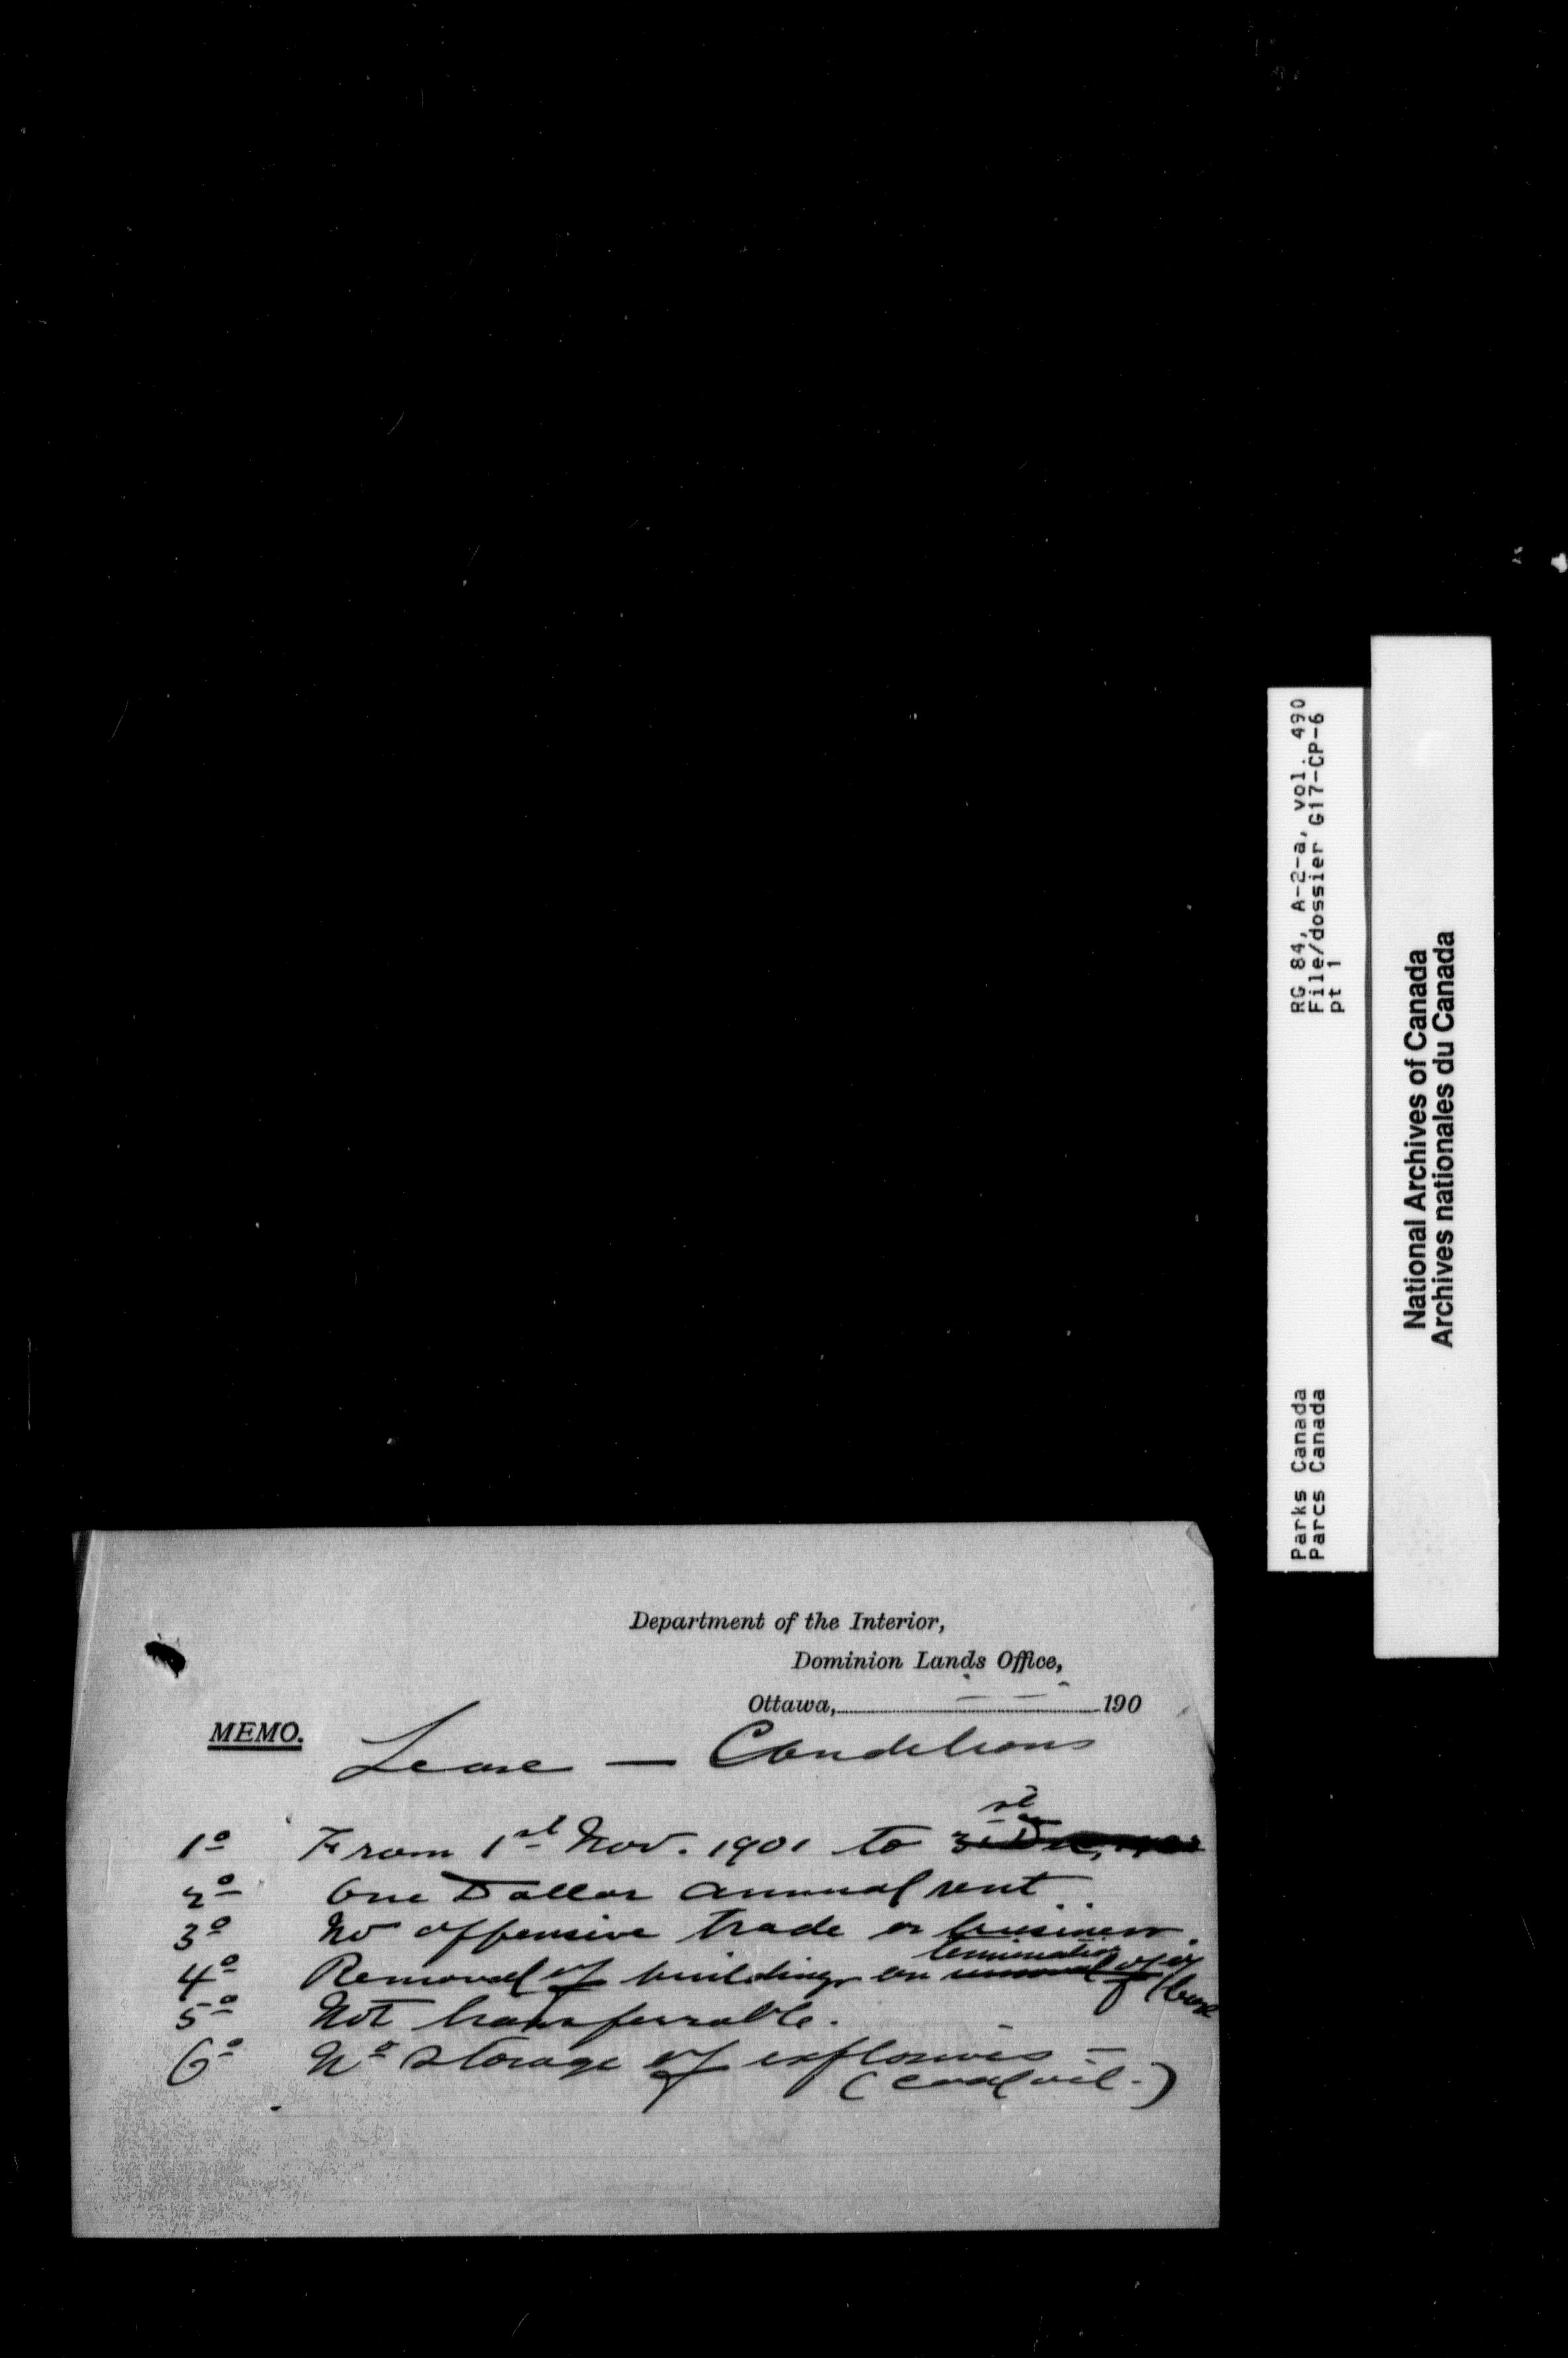 Department of the Interior,
Dominion Lands Office,
Ottawa, 190
MEMO.
Lease — Conditions
1º From 1st Nov. 1901 to 31st Dec.
2º One Dollar annual rent
3º No offensive trade or business.
4º Removal of buildings on termination of lease
5º Not transferrable.
6º Nº storage of explosives —
(coal oil -)
RG 84, A-2-a, vol. 490
File/dossier G17-CP-6
pt 1
Parks Canada
Parcs Canada
National Archives of Canada
Archives nationales du Canada